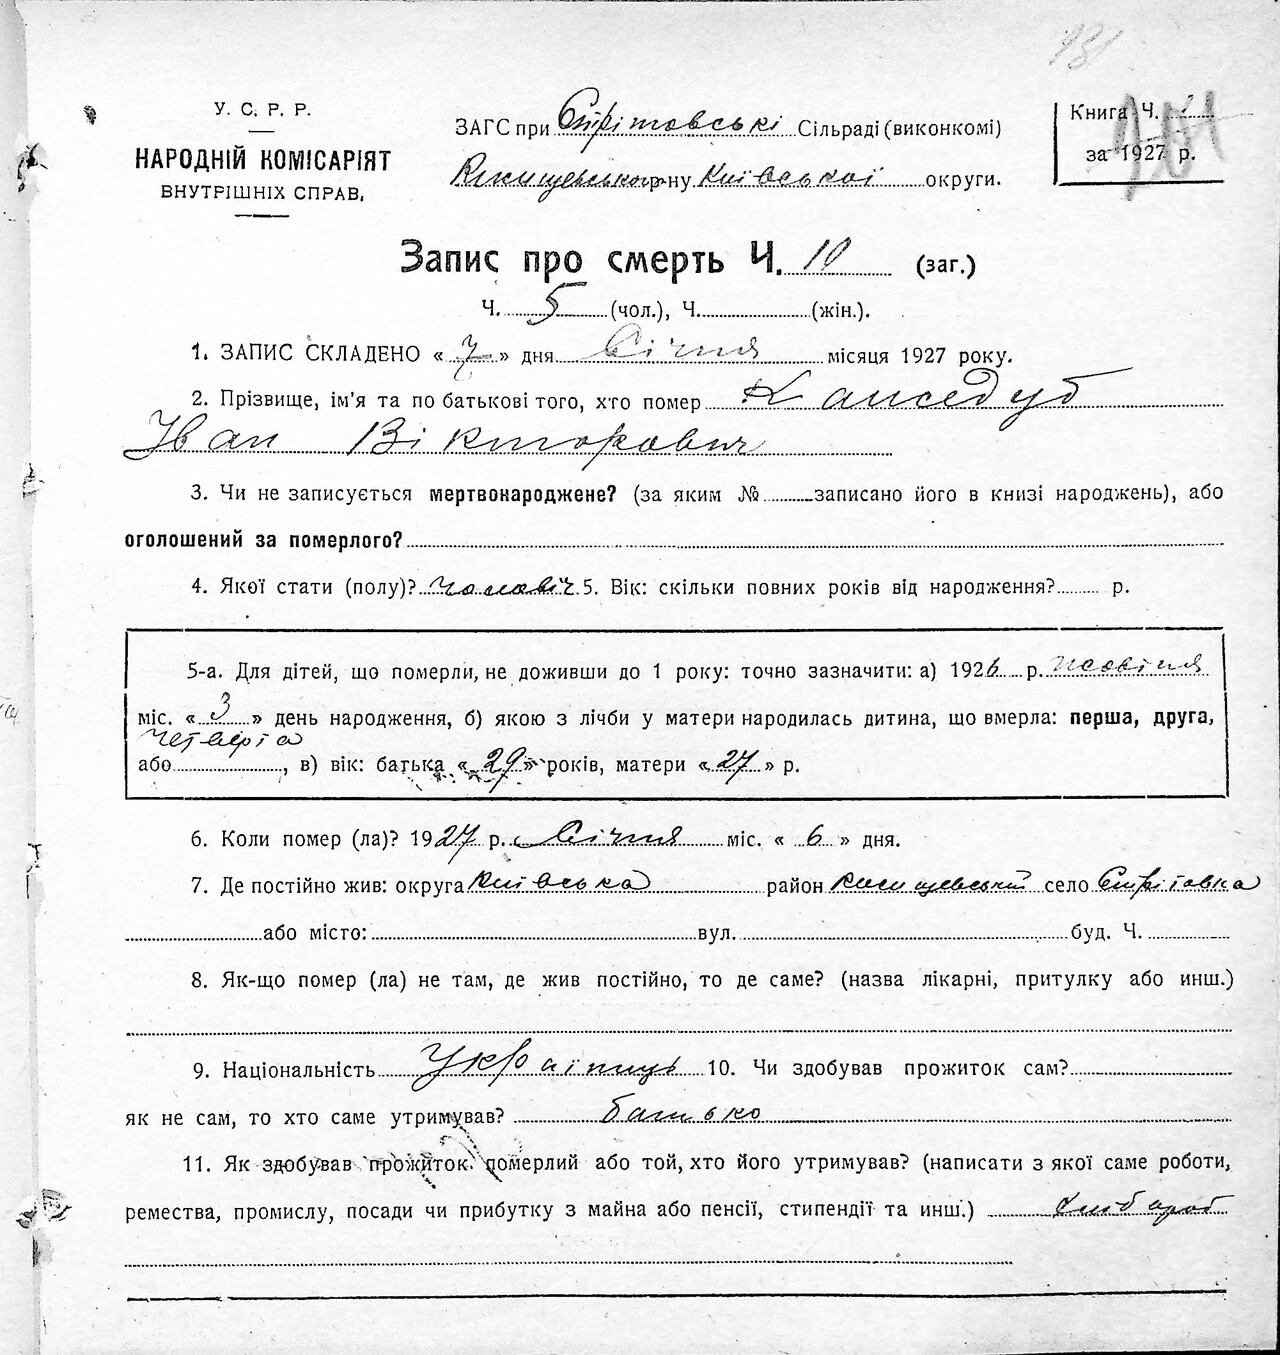 181
У. С. Р. Р.
НАРОДНІЙ КОМІСАРІЯТ
ВНУТРІШНІХ СПРАВ.
ЗАГС при Стрітовські Сільраді (виконкомі)
р-ну Київської округи.
Книга Ч.
за 1927 р.
Запис про смерть Ч. 10 (заг.)
Ч. 5 (чол.), Ч. (жін.).
1. ЗАПИС СКЛАДЕНО « 7 » дня Січня місяця 1927 року.
2. Прізвище, ім'я та по батькові того, хто помер Канседуб
Іван Вікторович
3. Чи не записується мертвонароджене? (за яким № записано його в книзі народжень), або
оголошений за померлого?
4. Якої стати (полу)? чоловіч. 5. Вік: скільки повних років від народження? р.
5-а. Для дітей, що померли, не доживши до 1 року: точно зазначити: а) 1926 р.
міс. « 3 » день народження, б) якою з лічби у матери народилась дитина, що вмерла: перша, друга,
четверта
або , в) вік: батька « 29 » років, матери « 27 » р.
6. Коли помер (ла)? 1927 р. Січня міс. « 6 » дня.
7. Де постійно жив: округа Київська район село Стрітовка
або місто: вул. буд. Ч.
8. Як-що помер (ла) не там, де жив постійно, то де саме? (назва лікарні, притулку або инш.)
9. Національність Українць 10. Чи здобував прожиток сам?
як не сам, то хто саме утримував? батько
11. Як здобував прожиток померлий або той, хто його утримував? (написати з якої саме роботи,
ремества, промислу, посади чи прибутку з майна або пенсії, стипендії та инш.) хлібароб